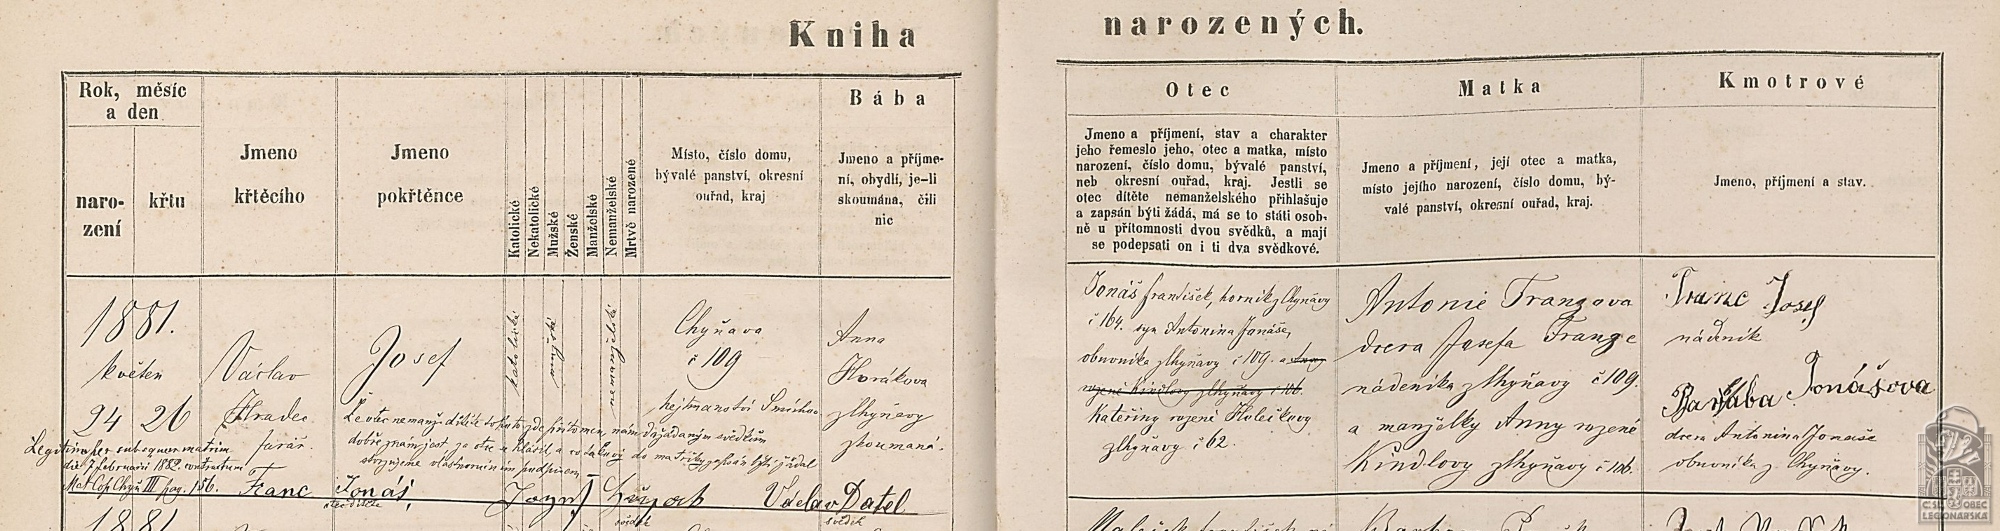 Kniha
narozených.
Rok, měsíc
a den
naro-
zení
křtu
Jmeno
křtěcího
Jmeno
pokřtěnce
Katolické
Nekatolické
Mužské
Ženské
Manželské
Nemanželské
Mrtvě narozené
Místo, číslo domu,
bývalé panství, okresní
ouřad, kraj
Bába
Jmeno a příjme-
ní, obydlí, je-li
skoumána, čili
nic
Otec
Jmeno a příjmení, stav a charakter
jeho řemeslo jeho, otec a matka, místo
narození, číslo domu, bývalé panství,
neb okresní ouřad, kraj. Jestli se
otec dítěte nemanželského přihlašuje
a zapsán býti žádá, má se to státi osob-
ně u přítomnosti dvou svědků, a mají
se podepsati on i ti dva svědkové.
Matka
Jmeno a příjmení, její otec a matka,
místo jejího narození, číslo domu, bý-
valé panství, okresní ouřad, kraj.
Kmotrové
Jmeno, příjmení a stav.
1881.
květen
24 26
Legitim. per subsequ. matrim.
die 7 februarii 1882 contractum
Mat. Cop. Chyň. III pag. 156.
Václav
Hradec
farář
Josef
katolické
mužské
nemanželské
Chyňava
č 109
hejtmanství Smíchov
Anna
Horákova
z Chyňavy
zkoumaná
Že otec nemanž. dítěte tohoto, zde přítomen, nám dožádaným svědkům
dobře znám jest, za otce se hlásil a co takový do matriky zapsán býti žádal
stvrzujeme vlastnoručním podpisem
Franc Jonáš,
otec dítěte
Václav Datel
svědek
svědek
Jonáš František, horník z Chyňavy
č 164. syn Antonína Jonáše,
obuvníka z Chyňavy č 109. a Anny
rozené Kindlovy z Chyňavy č 106.
Kateřiny rozené Holečkovy
z Chyňavy č 62.
Antonie Francova
dcera Josefa France
nádeníka z Chyňavy č 109.
a manželky Anny rozené
Kindlovy z Chyňavy č 106.
Franc Josef
nádeník
Barbaba Jonášova
dcera Antonína Jonáše
obuvníka z Chyňavy.
1881
ČS. OBEC
LEGIONÁŘSKÁ